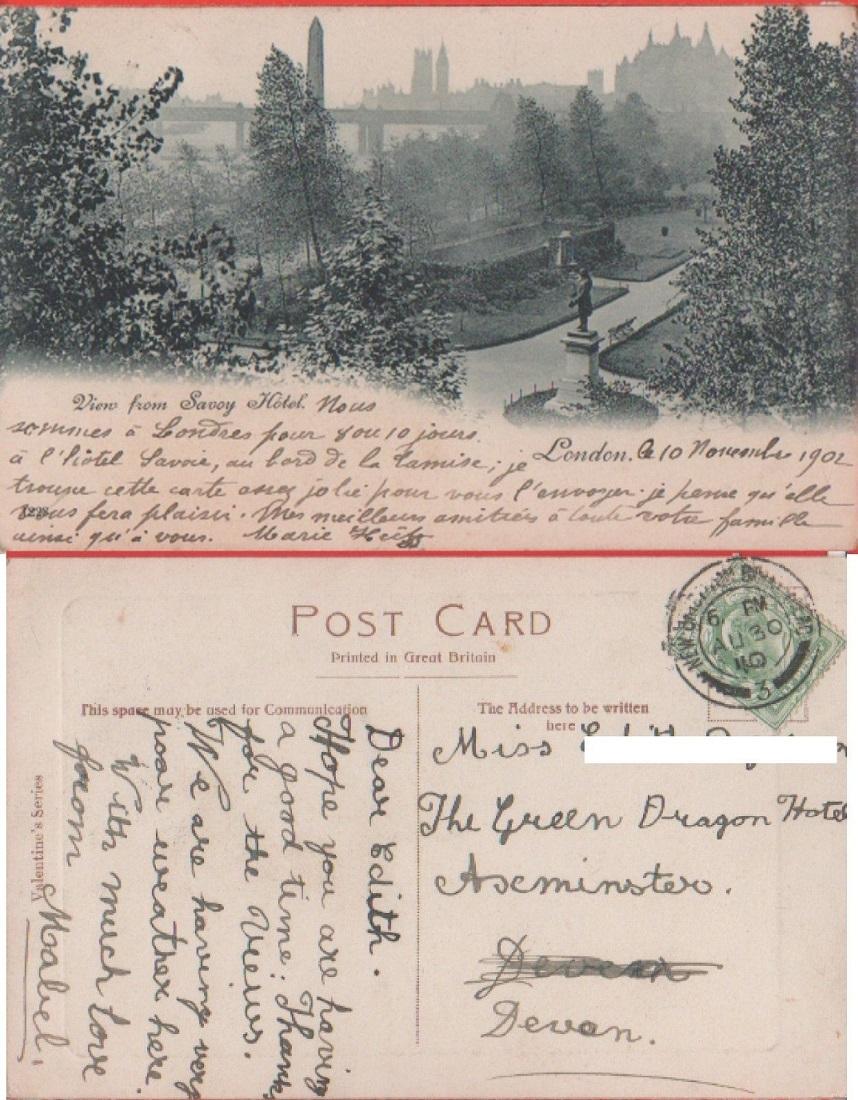 View from Savoy Hôtel. Nous
sommes à Londres pour 8 ou 10 jours
à l'hôtel Savoie, au bord de la Tamise; je
London. le 10 Novembre 1902
trouve cette carte assez jolie pour vous l'envoyer. je pense qu'elle
vous fera plaisir. Mes meilleurs amitiées à toute votre famille
ainsi qu'à vous. Marie
POST CARD
Printed in Great Britain
This space may be used for Communication
The Address to be written
here
6 PM
AU 30
10
3
Valentine's Series
Dear Edith.
Hope you are having
a good time. Thanks
for the Views.
We are having very
poor weather here.
With much love
from Mabel.
Miss
The Green Dragon Hotel
Axminster.
Devon
Devon.